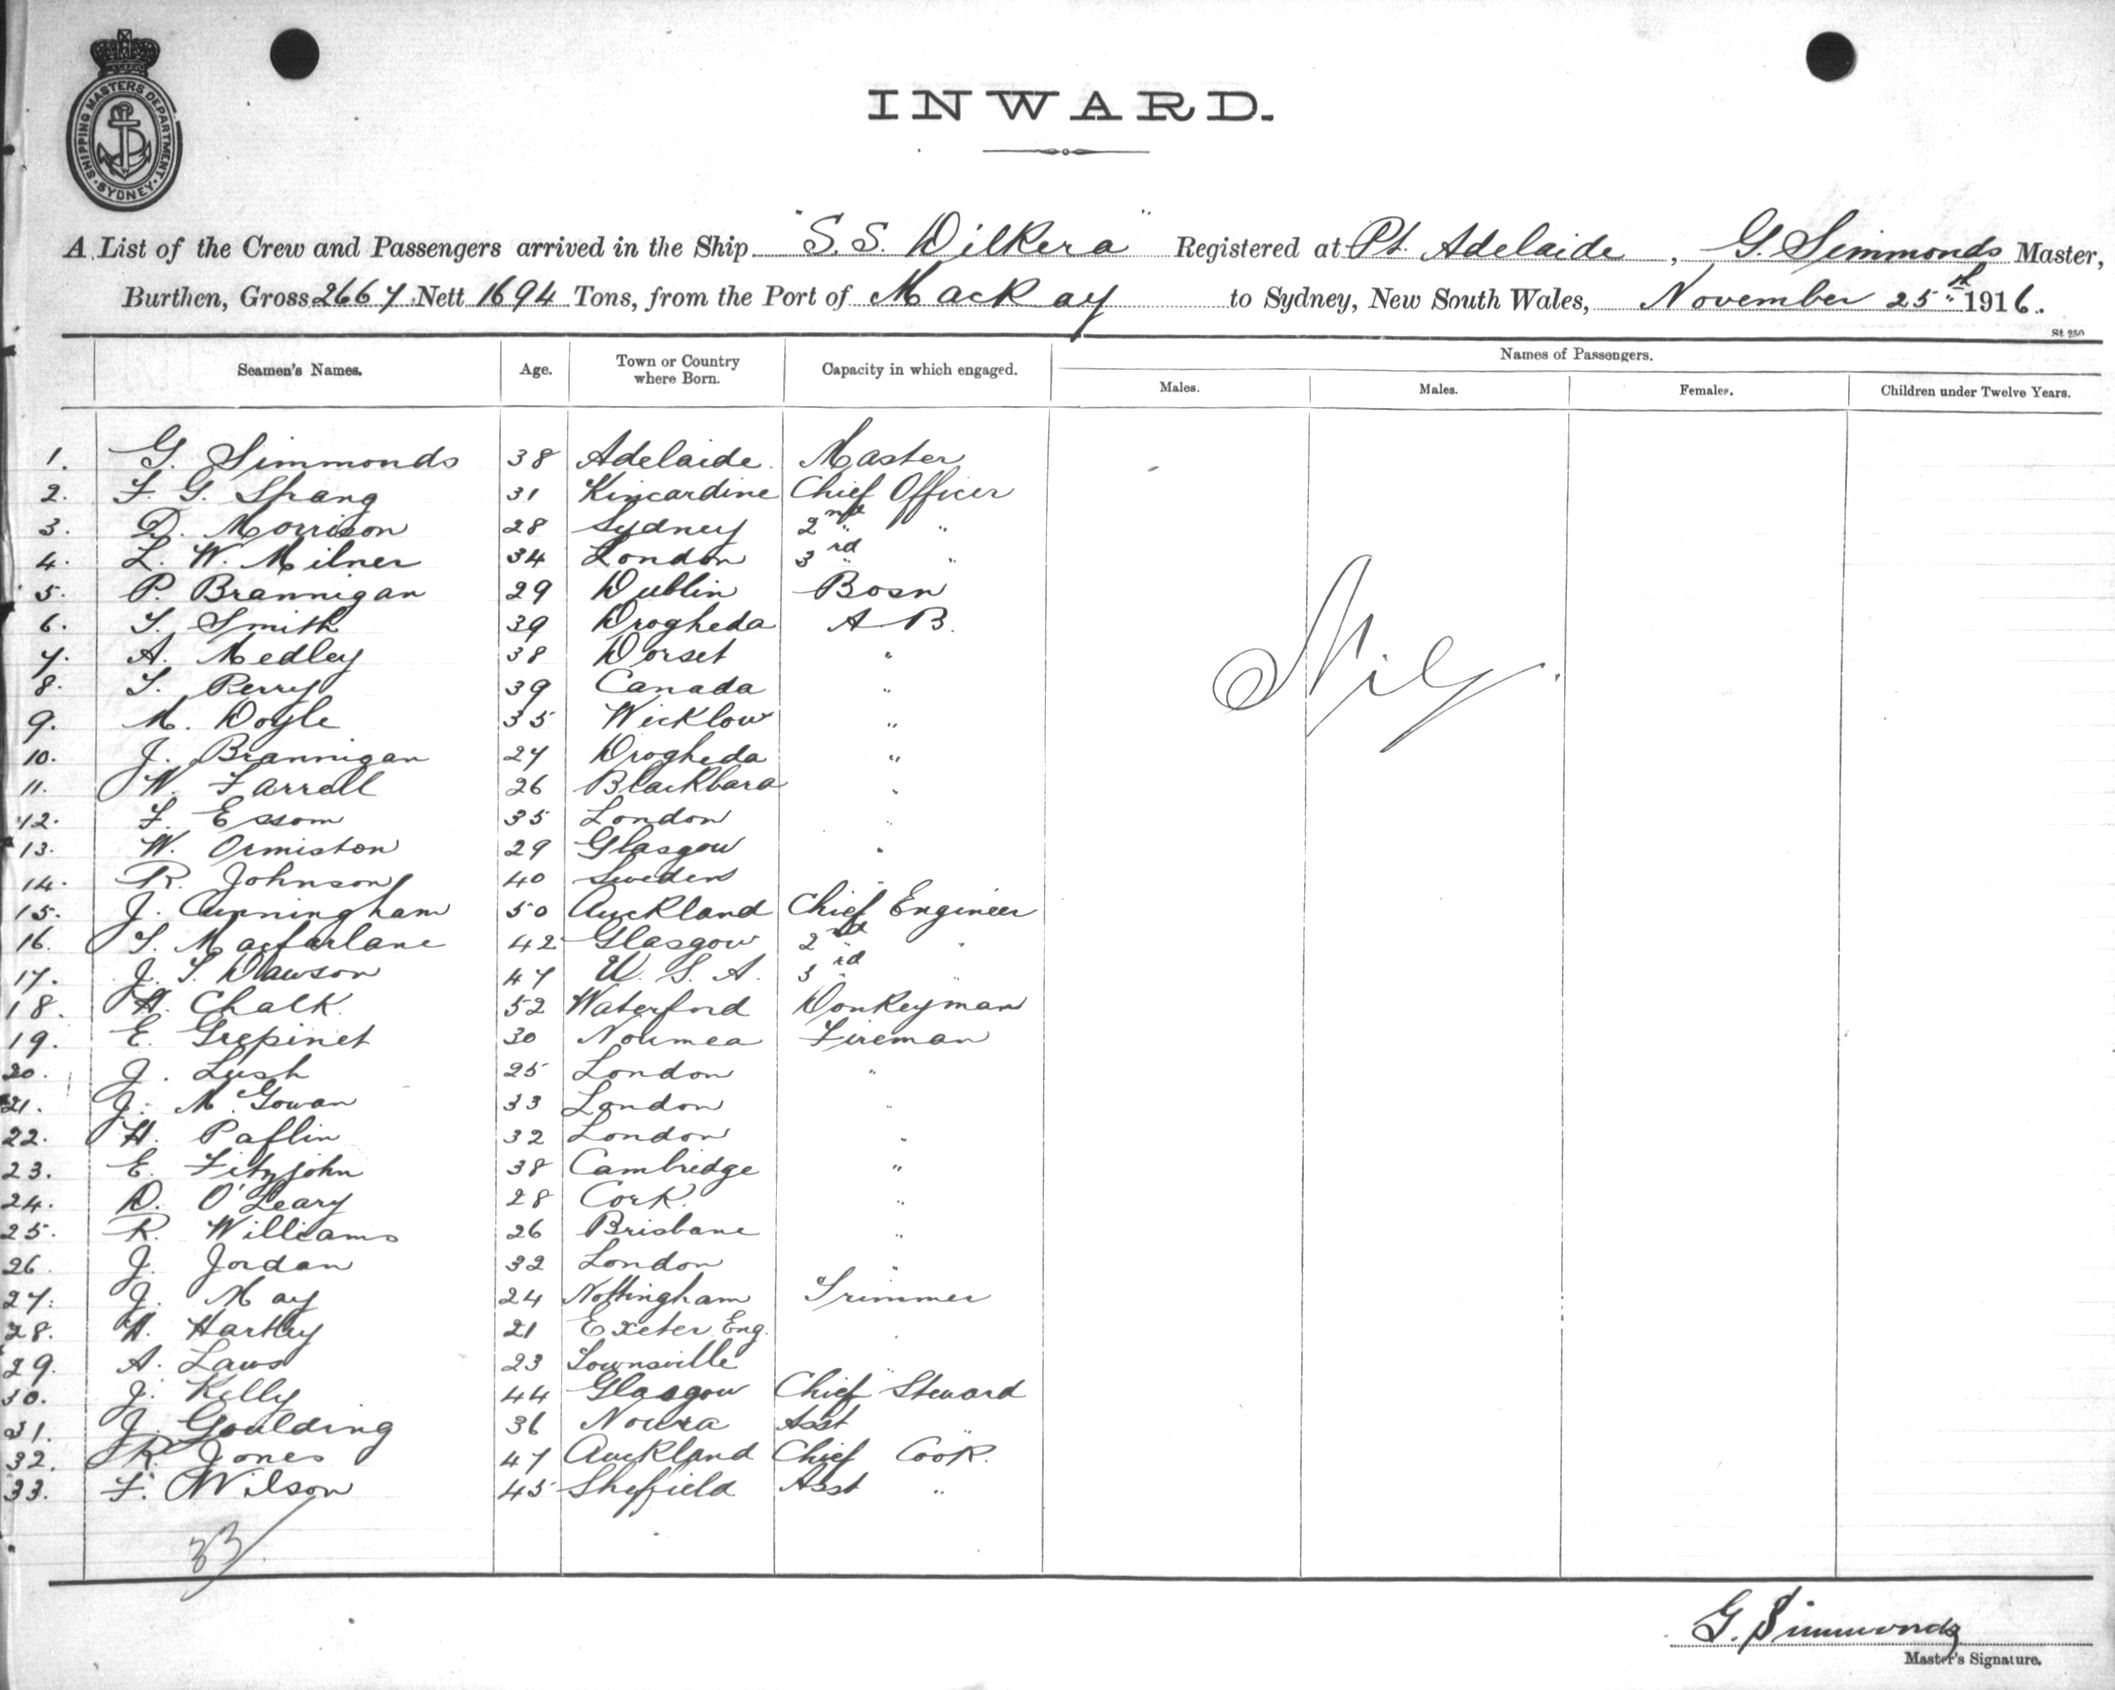 SHIPPING MASTERS DEPARTMENT
SYDNEY
INWARD.
A List of the Crew and Passengers arrived in the Ship "S.S. Dilkera" Registered at Pt. Adelaide, G. Simmonds Master,
Burthen, Gross 2667 Nett 1694 Tons, from the Port of Mackay to Sydney, New South Wales, November 25th 1916.
St 250
Seamen's Names. Age. Town or Country where Born. Capacity in which engaged. Names of Passengers.
Males. Males. Females. Children under Twelve Years.
1. G. Simmonds 38 Adelaide. Master
2. F. G. Spang 31 Kincardine Chief Officer
3. D. Morrison 28 Sydney 2nd "
4. L. W. Milner 34 London 3rd "
5. P. Brannigan 29 Dublin Bosn
6. T. Smith 39 Drogheda A B.
7. A. Medley 38 Dorset "
8. T. Perry 39 Canada "
9. M. Doyle 35 Wicklow "
10. J. Brannigan 27 Drogheda "
11. W. Farrell 26 Blackbara "
12. F. Essom 35 London "
13. W. Ormiston 29 Glasgow "
14. R. Johnson 40 Sweden "
15. J. Cunningham 50 Auckland Chief Engineer
16. T. Macfarlane 42 Glasgow 2nd "
17. J. T. Dawson 47 U. S. A. 3rd "
18. H. Chalk 52 Waterford Donkeyman
19. E. Grepinet 30 Noumea Fireman
20. J. Lush 25 London "
21. J. McGowan 33 London "
22. H. Paflin 32 London "
23. E. Fitzjohn 38 Cambridge "
24. D. O'Leary 28 Cork. "
25. R. Williams 26 Brisbane "
26. J. Jordan 32 London "
27. J. May 24 Nottingham Trimmer
28. H. Hartley 21 Exeter Eng. "
29. A. Laws 23 Townsville "
30. J. Kelly 44 Glasgow Chief Steward
31. J. Goulding 36 Nowra Asst "
32. R. Jones 47 Auckland Chief Cook.
33. F. Wilson 45 Sheffield Asst "
Nil.
33
G. Simmonds
Master's Signature.